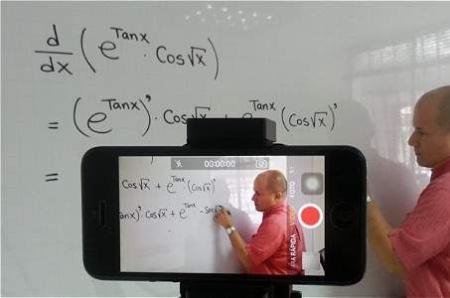 d/dx (e^Tanx · Cos√x)
= (e^Tanx)' · Cos√x + e^Tanx (Cos√x)'
=
00:00:00
Cos√x + e^Tanx · (Cos√x)'
anx)' · Cos√x + e^Tanx · -Sen
FOTO